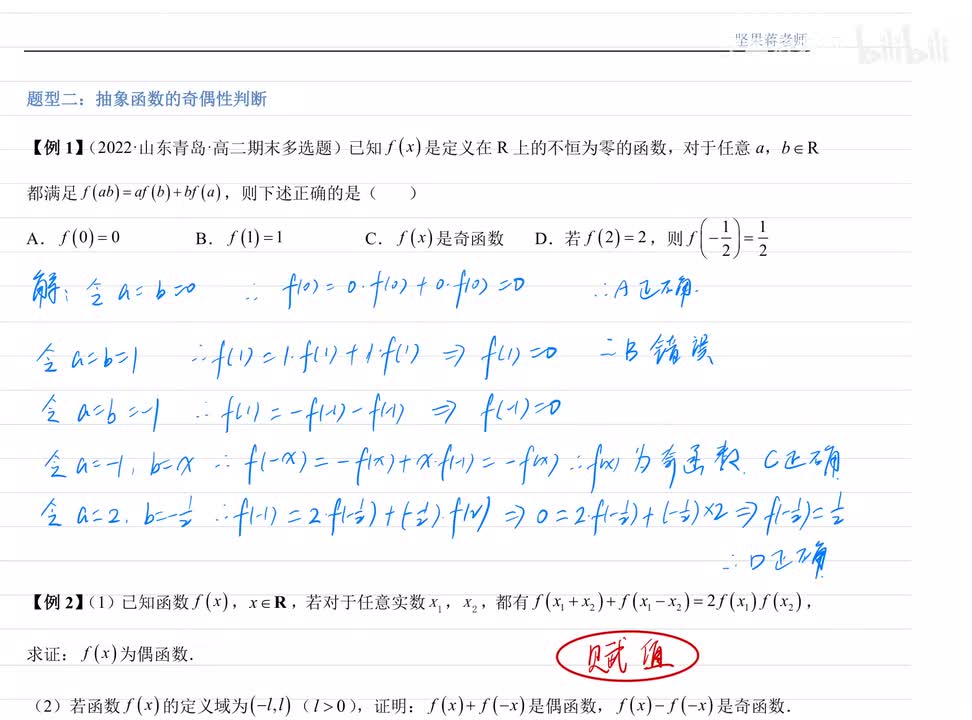 坚果蒋老师
bilibili
题型二：抽象函数的奇偶性判断
【例 1】（2022·山东青岛·高二期末多选题）已知 f(x) 是定义在 R 上的不恒为零的函数，对于任意 a，b∈R
都满足 f(ab)=af(b)+bf(a)，则下述正确的是（　　）
A．f(0)=0　B．f(1)=1　C．f(x) 是奇函数　D．若 f(2)=2，则 f(-1/2)=1/2
解：令 a=b=0　∴ f(0)=0·f(0)+0·f(0)=0　∴A正确.
令 a=b=1　∴f(1)=1·f(1)+1·f(1) ⇒ f(1)=0　∴B错误
令 a=b=-1　∴f(1)=-f(-1)-f(-1) ⇒ f(-1)=0
令 a=-1, b=x ∴f(-x)=-f(x)+x·f(-1)=-f(x) ∴f(x) 为奇函数. C正确
令 a=2, b=-1/2 ∴f(-1)=2·f(-1/2)+(-1/2)·f(2) ⇒ 0=2·f(-1/2)+(-1/2)×2 ⇒ f(-1/2)=1/2
∴D正确
【例 2】（1）已知函数 f(x)，x∈R，若对于任意实数 x₁，x₂，都有 f(x₁+x₂)+f(x₁-x₂)=2f(x₁)f(x₂)，
求证：f(x) 为偶函数．
赋值
（2）若函数 f(x) 的定义域为(-l,l)（l>0），证明：f(x)+f(-x) 是偶函数，f(x)-f(-x) 是奇函数．